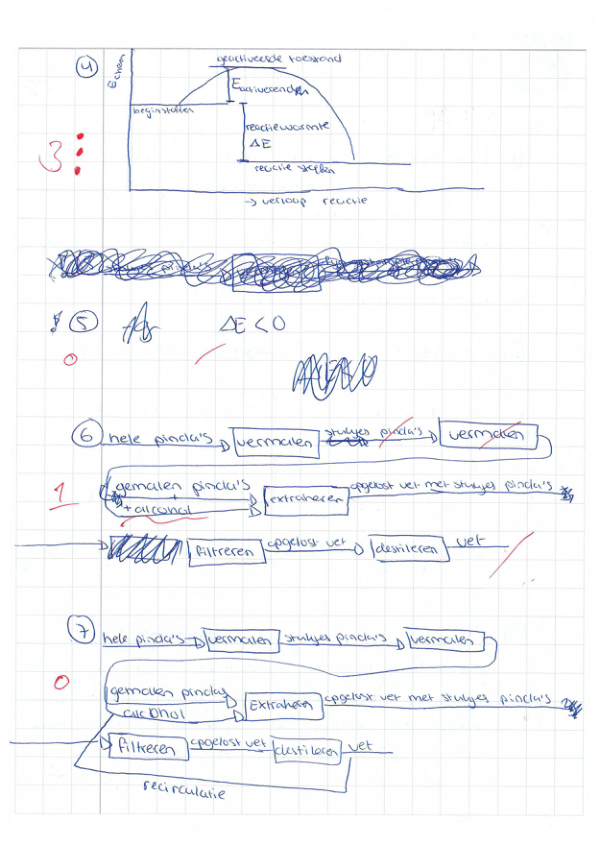 ④
geactiveerde toestand
Echem
Eactiverende
beginstoffen
reactiewarmte
ΔE
reactie stoffen
3
→ verloop reactie
⑤ ΔE < 0
0
⑥ hele pinda's vermalen stukjes pinda's vermalen
1 gemalen pinda's extraheren opgelost vet met stukjes pinda's
+
+ alcohol
filtreren opgelost vet destileren vet
⑦ hele pinda's vermalen stukjes pinda's vermalen
0 gemalen pindas Extraheren opgelost vet met stukjes pinda's
alcohol
filtreren opgelost vet destileren vet
recirculatie